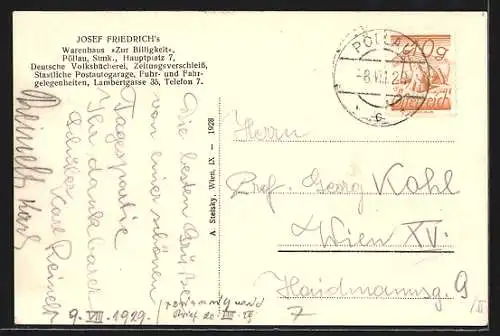 JOSEF FRIEDRICH's
Warenhaus »Zur Billigkeit«,
Pöllau, Stmk., Hauptpatz 7,
Deutsche Volksbücherei, Zeitungsverschleiß,
Staatliche Postautogarage, Fuhr- und Fahr-
gelegenheiten, Lambertgasse 35, Telefon 7.
PÖLLAU
-8.VIII.29
c
10g
A. Stelsky, Wien, IX – 1928
Die besten Grüße
von einer schönen
Tagespartie
Ihr dankbarer
Schüler Karl Reindl
Reindl Karl
9. VIII. 1929.
Brief 20. VIII.
Herrn
Prof. Georg Kahl
Wien XV.
Haidmannsg 9
7
/III